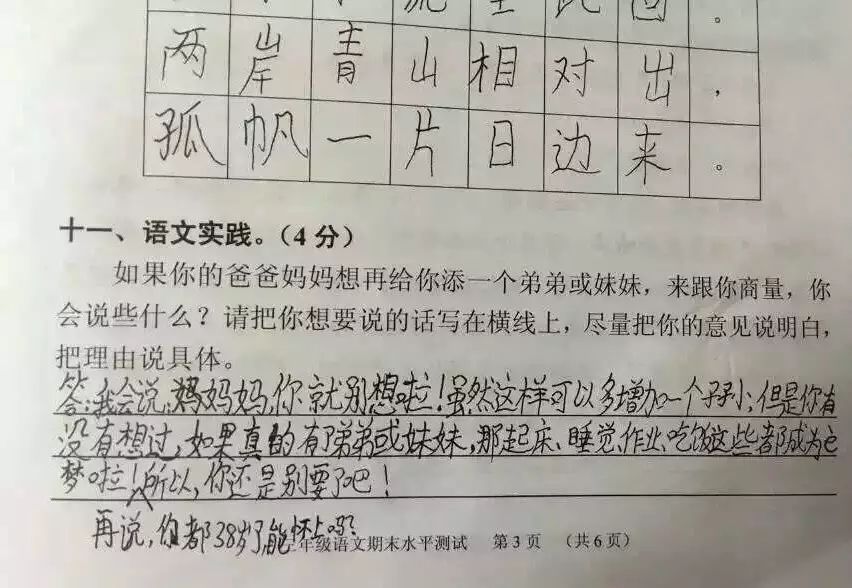 流至此回。
两岸青山相对出，
孤帆一片日边来。
十一、语文实践。（4分）
如果你的爸爸妈妈想再给你添一个弟弟或妹妹，来跟你商量，你
会说些什么？请把你想要说的话写在横线上，尽量把你的意见说明白，
把理由说具体。
答:我会说:妈妈,你就别想啦!虽然这样可以多增加一个,但是你有
没有想过,如果真的有了弟弟或妹妹,那起床、睡觉、作业、吃饭这些都成为
梦啦!所以,你还是别要了吧!
再说,你都38岁了,能怀上吗?
年级语文期末水平测试 第3页 （共6页）